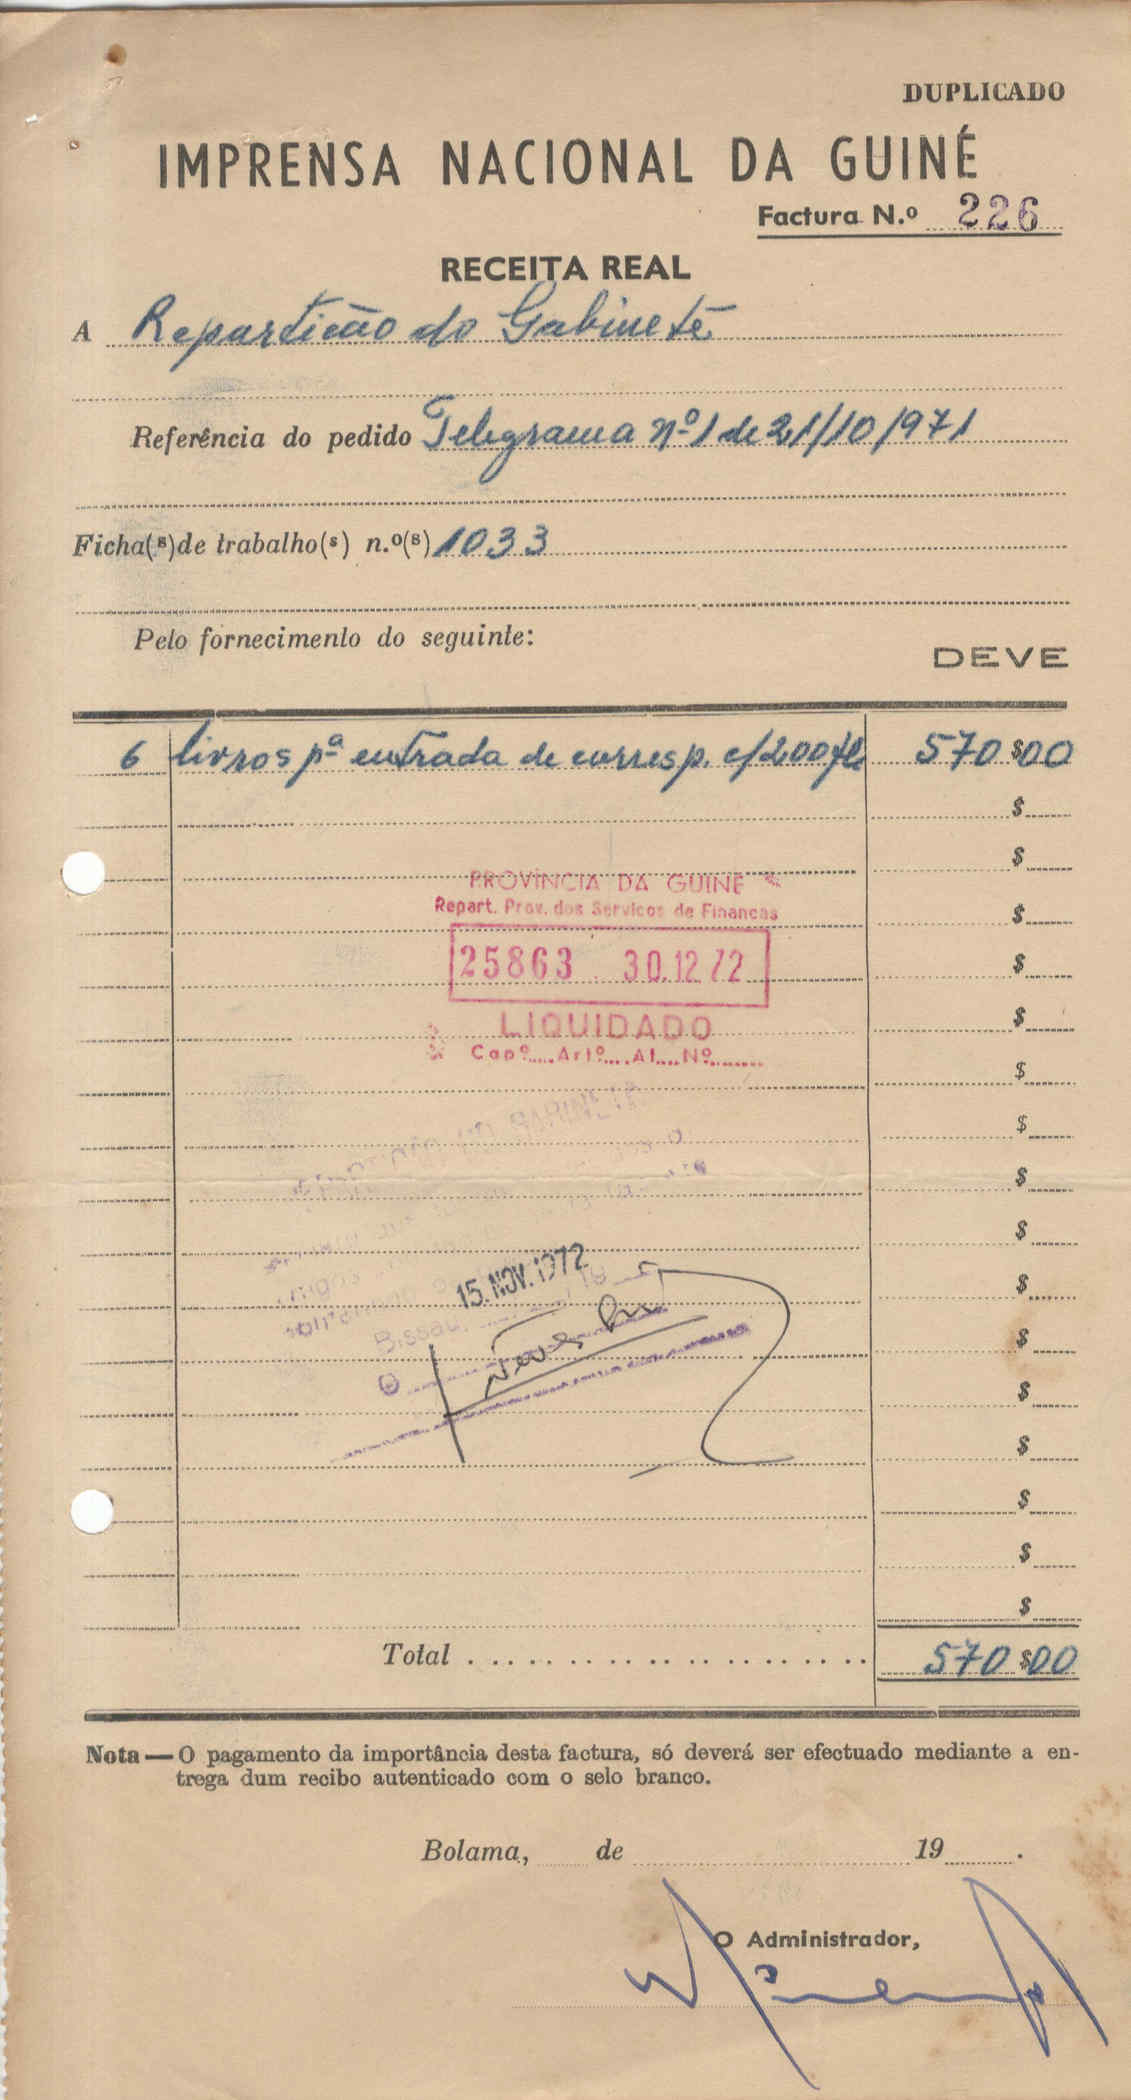 DUPLICADO
IMPRENSA NACIONAL DA GUINÉ
Factura N.º 226
RECEITA REAL
A Repartição do Gabinete
Referência do pedido Telegrama nº 1 de 21/10/971
Ficha(s) de trabalho(s) n.º(s) 1033
Pelo fornecimento do seguinte:
DEVE
6 livros pª entrada de corresp. c/200 fls 570$00
$
$
PROVÍNCIA DA GUINÉ
Repart. Prov. dos Serviços de Finanças
$
25863 30.12.72
$
LIQUIDADO
$
Capº.... Artº.... Al.... Nº.......
$
$
DO GABINETE
$
$
15. NOV. 1972
$
Bissau,
Neves
O
$
$
$
$
$
$
Total . . . . . . . . . . . . . . . . . . . . . 570$00
Nota — O pagamento da importância desta factura, só deverá ser efectuado mediante a en-
trega dum recibo autenticado com o selo branco.
Bolama, de 19 .
O Administrador,